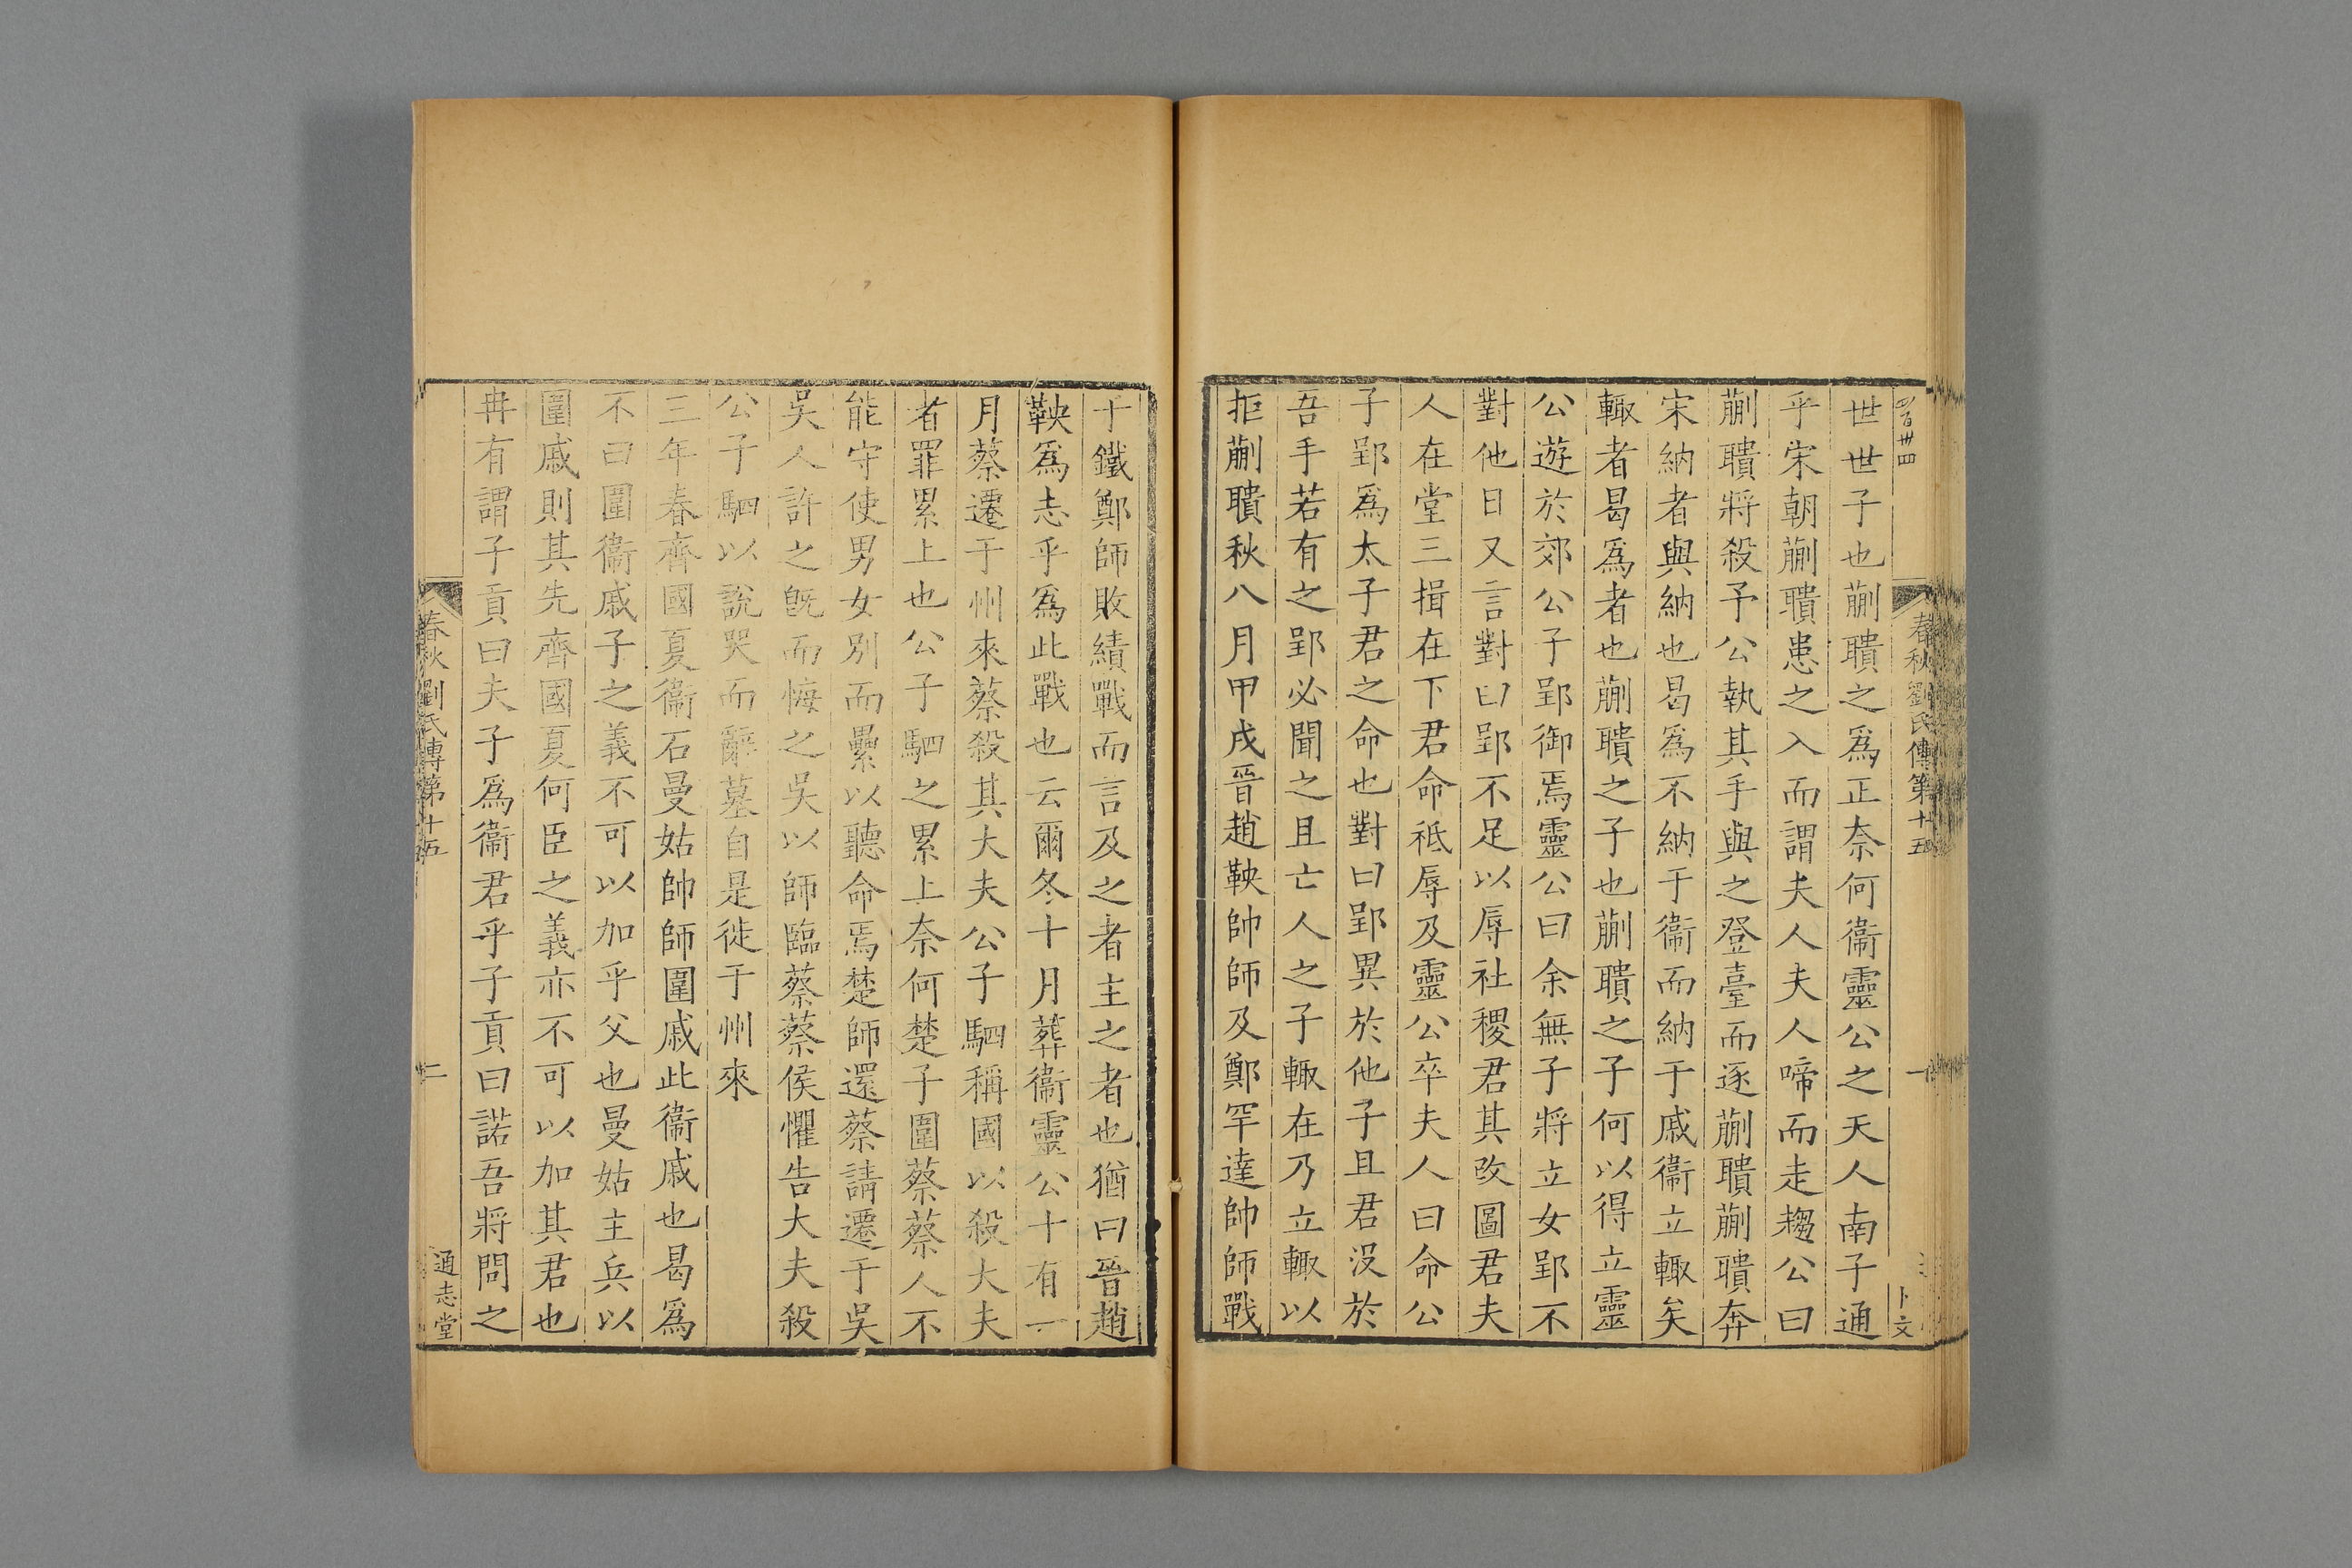 世世子也蒯聵之爲正奈何衞靈公之夫人南子通
乎宋朝蒯聵患之入而謂夫人夫人啼而走趨公曰
蒯聵將殺予公執其手與之登臺而逐蒯聵蒯聵奔
宋納者與納也曷爲不納于衞而納于戚衞立輙矣
輙者曷爲者也蒯聵之子也蒯聵之子何以得立靈
公遊於郊公子郢御焉靈公曰余無子將立女郢不
對他日又言對曰郢不足以辱社稷君其改圖君夫
人在堂三揖在下君命祗辱及靈公卒夫人曰命公
子郢爲太子君之命也對曰郢異於他子且君没於
吾手若有之郢必聞之且亡人之子輙在乃立輙以
拒蒯聵秋八月甲戌晉趙鞅帥師及鄭罕達帥師戰
春秋劉氏傳第十五
一
卜文
于鐵鄭師敗績戰而言及之者主之者也猶曰晉趙
鞅爲志乎爲此戰也云爾冬十月葬衞靈公十有一
月蔡遷于州來蔡殺其大夫公子駟稱國以殺大夫
者罪累上也公子駟之累上奈何楚子圍蔡蔡人不
能守使男女別而纍以聽命焉楚師還蔡請遷于吳
吳人許之旣而悔之吳以師臨蔡蔡侯懼告大夫殺
公子駟以說哭而辭墓自是徙于州來
三年春齊國夏衞石曼姑帥師圍戚此衞戚也曷爲
不曰圍衞戚子之義不可以加乎父也曼姑主兵以
圍戚則其先齊國夏何臣之義亦不可以加其君也
冉有謂子貢曰夫子爲衞君乎子貢曰諾吾將問之
春秋劉氏傳第十五
二
通志堂